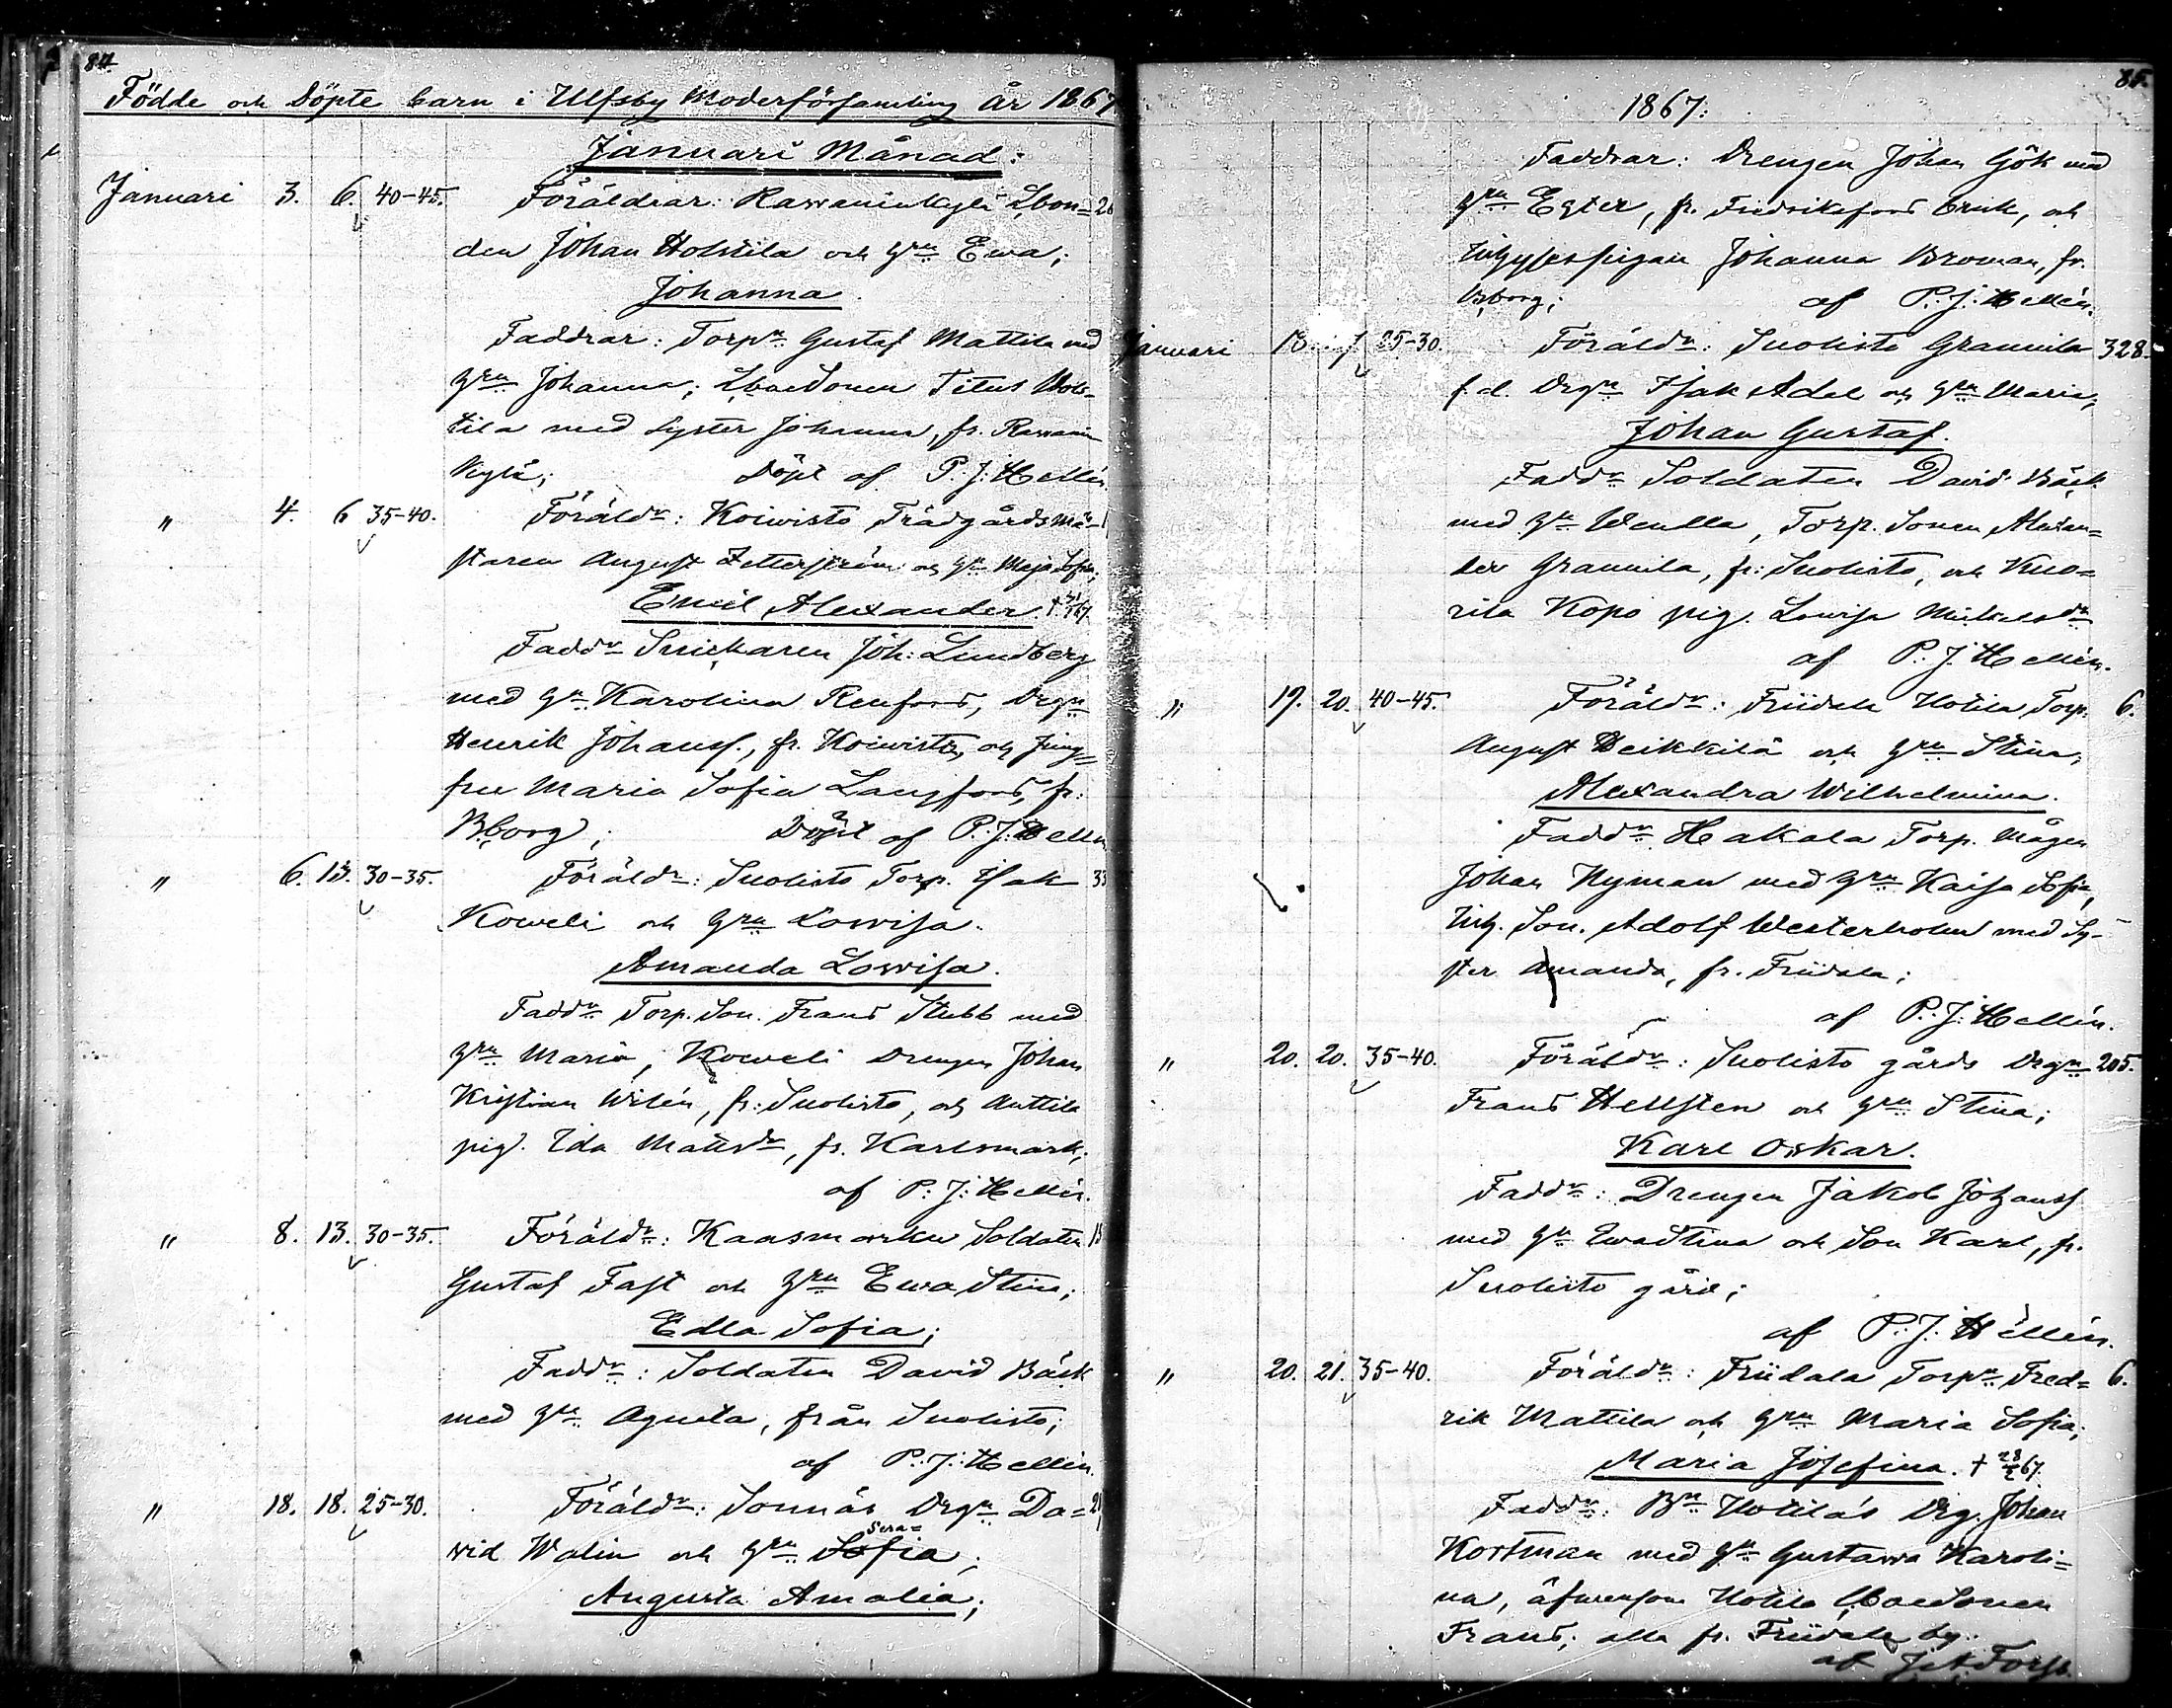 84.
Födde och Döpte barn i Ulfsby Moderförsamling år 1867
Januari Månad:
Januari 3. 6. 40-45. Föräldrar: Rawaninkylä Lbon=
den Johan Holttila och hru Ewa;
Johanna.
Faddrar: Torpn Gustaf Mattila med
hru Johanna; Lbdesonen Titus Hol-
tila med syster Johanna, fr. Rawanin
kylä; Döpt af P. J. Hellén.
" 4. 6 35-40. Föräldr: Koiwisto Trädgårdsmä-
staren August Zetterström och hu Maja Sofia;
Emil Alexander. †
Faddr Snickaren Joh: Lundberg
med hu Karolina Renfors, Drgn
Henrik Johanss., fr. Koiwisto, och Jung=
fru Maria Sofia Langfors, fr:
B:borg; Döpt af P. J. Hellén
" 6. 13. 30-35. Föräldr: Suolisto Torp. Isak
Koweli och hru Lowisa.
Amanda Lowisa.
Faddr Torp. Son. Frans Stubb med
hru Maria; Koweli Drengen Johan
Kristian Wilén, fr: Suolisto, och Anttila
pig. Ida Mattsdr, fr. Karlsmark;
af P: J: Hellén.
" 8. 13. 30-35. Föräldr: Kaasmarku Soldaten
Gustaf Fast och hru Ewa Stina;
Edla Sofia;
Faddr: Soldaten David Bäck
med hru Agneta, från Suolisto;
af P: J: Hellén.
" 18. 18. 25-30. Föräldr: Sonnäs Drgn Da=
Sera=
vid Walin och hru Sofia;
Augusta Amalia;
85.
1867:
Faddrar: Drengen Johan Gök med
hru Ester, fr. Fredriksfors bruk, och
Inhysespigan Johanna Broman, fr.
B:borg; af P: J: Hellén.
Januari 18. 25-30. Föräldr: Suolisto Grannila 328.
f.d. Drgn Isak Adel och hru Maria;
Johan Gustaf.
Faddr Soldaten David Bäck
med hu Wenlla, Torp. Sonen Alexan=
der Grannila, fr: Suolisto, och Kuo=
rila Kopo pig. Lowisa Mickelsdr
af P: J. Hellén.
" 19. 20. 40-45. Föräldr: Friidala Uotila Torp. 6.
August Heikkilä och hru Stina;
Alexandra Wilhelmina.
Faddr Hakala Torp. Mågen
Johan Nyman med hru Kaisa Sofia,
Inh. Son. Adolf Westerholm med Sy-
ster Amanda, fr. Friidala;
af P: J: Hellén.
" 20. 20. 35-40. Föräldr: Suolisto gårds Drgn 205.
Frans Hellsten och hru Stina;
Karl Oskar.
Faddr: Drengen Jakob Johanss
med hu Ewa Stina och Son Karl, fr.
Suolisto gård;
af P: J: Hellén.
" 20. 21. 35-40. Föräldr: Friidala Torpn Fred= 6.
rik Mattila och hru Maria Sofia;
Maria Josefina. †
Faddr: Bn Uotila's Drg. Johan
Kortman med hu Gustawa Karoli=
na, äfwensom Uotila Lbdesonen
Frans; alla fr. Friidala by.
af